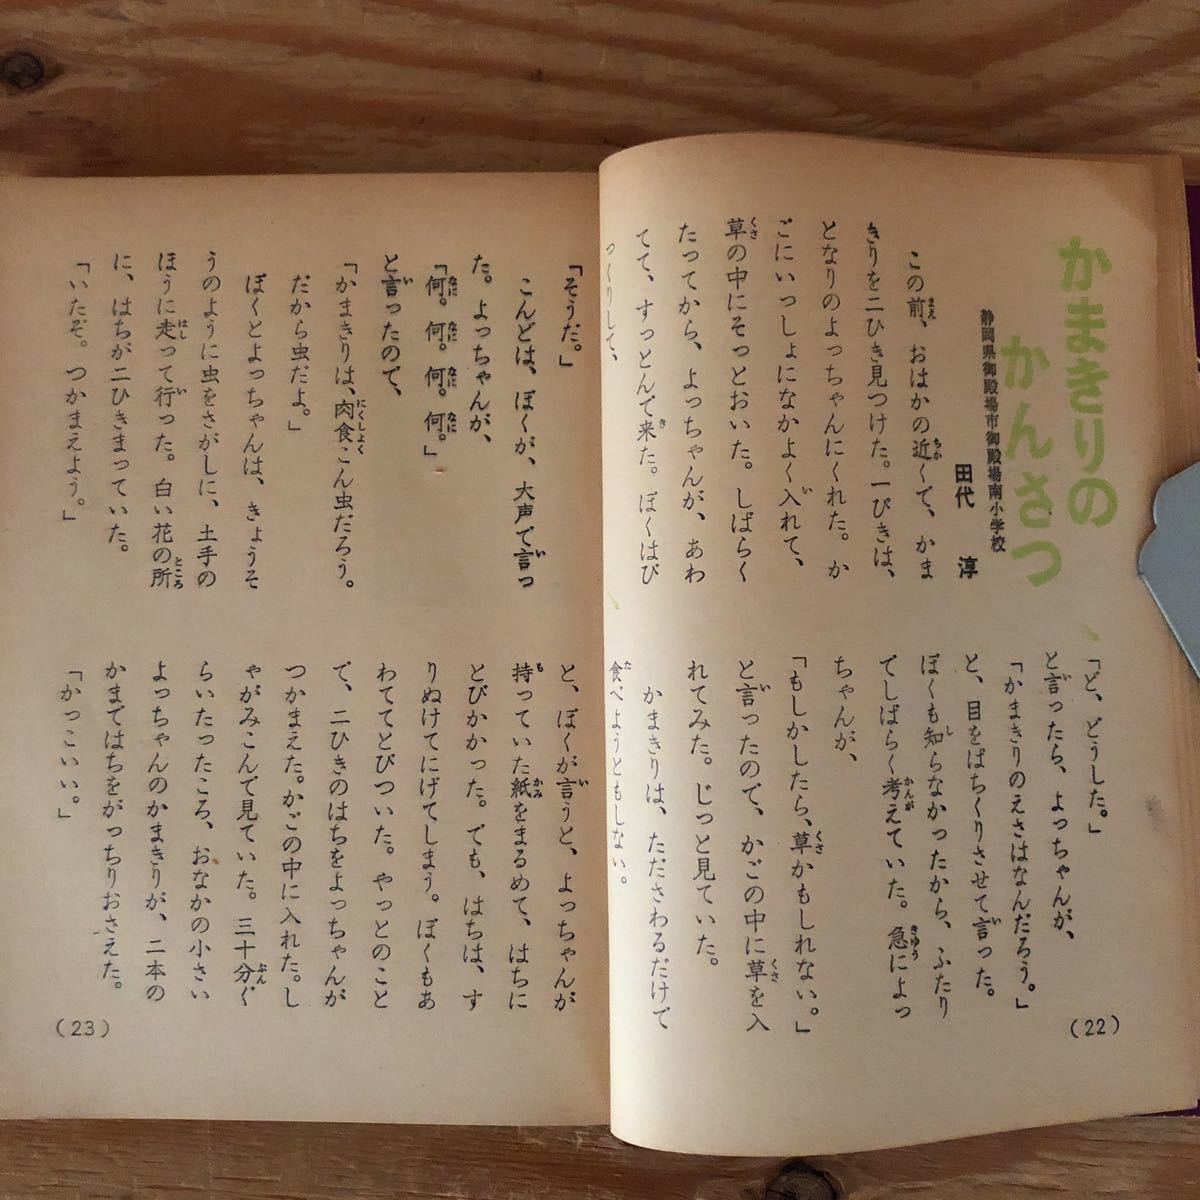 かまきりの
かんさつ
静岡県御殿場市御殿場南小学校
田代　淳
この前、おはかの近くで、かま
きりを二ひき見つけた。一ぴきは、
となりのよっちゃんにくれた。か
ごにいっしょになかよく入れて、
草の中にそっとおいた。しばらく
たってから、よっちゃんが、あわ
てて、すっとんで来た。ぼくはび
っくりして、
「ど、どうした。」
と言ったら、よっちゃんが、
「かまきりのえさはなんだろう。」
と、目をぱちくりさせて言った。
ぼくも知らなかったから、ふたり
でしばらく考えていた。急によっ
ちゃんが、
「もしかしたら、草かもしれない。」
と言ったので、かごの中に草を入
れてみた。じっと見ていた。
かまきりは、たださわるだけで
食べようともしない。
(22)
「そうだ。」
こんどは、ぼくが、大声で言っ
た。よっちゃんが、
「何。何。何。何。」
と言ったので、
「かまきりは、肉食こん虫だろう。
だから虫だよ。」
ぼくとよっちゃんは、きょうそ
うのように虫をさがしに、土手の
ほうに走って行った。白い花の所
に、はちが二ひきまっていた。
「いたぞ。つかまえよう。」
と、ぼくが言うと、よっちゃんが
持っていた紙をまるめて、はちに
とびかかった。でも、はちは、す
りぬけてにげてしまう。ぼくもあ
わててとびついた。やっとのこと
で、二ひきのはちをよっちゃんが
つかまえた。かごの中に入れた。し
ゃがみこんで見ていた。三十分ぐ
らいたったころ、おなかの小さい
よっちゃんのかまきりが、二本の
かまではちをがっちりおさえた。
「かっこいい。」
(23)